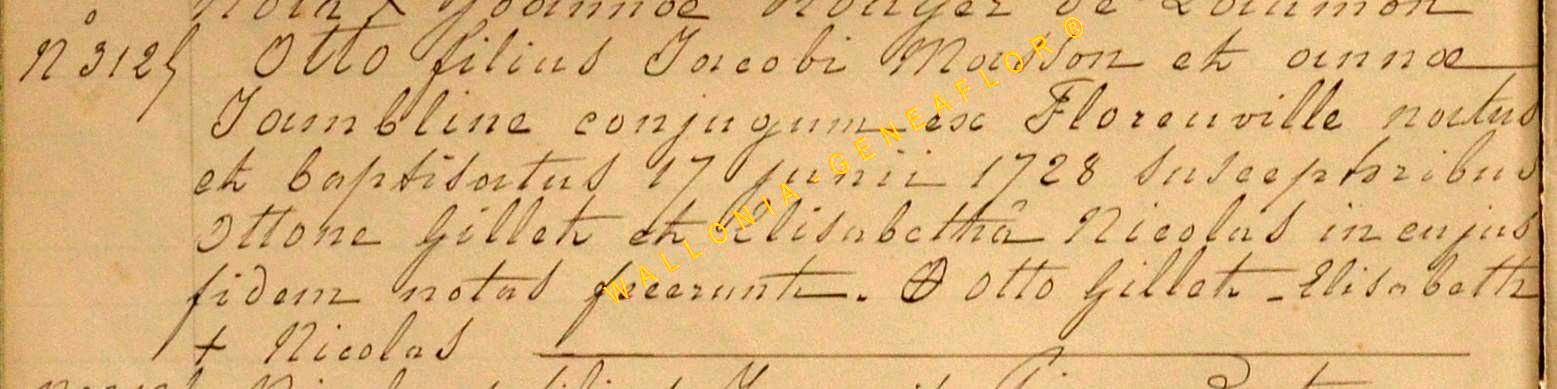 Joannæ de
N° 3125 Otto filius Jacobi Masson et annæ
Jambline conjugum ex Florenville natus
et baptisatus 17 junii 1728 susceptoribus
Ottone Gillet et Elisabethâ Nicolas in cujus
fidem notas fecerunt. O Otto Gillet - Elisabeth
+ Nicolas
WALLONIA - GENEAFLOR ®